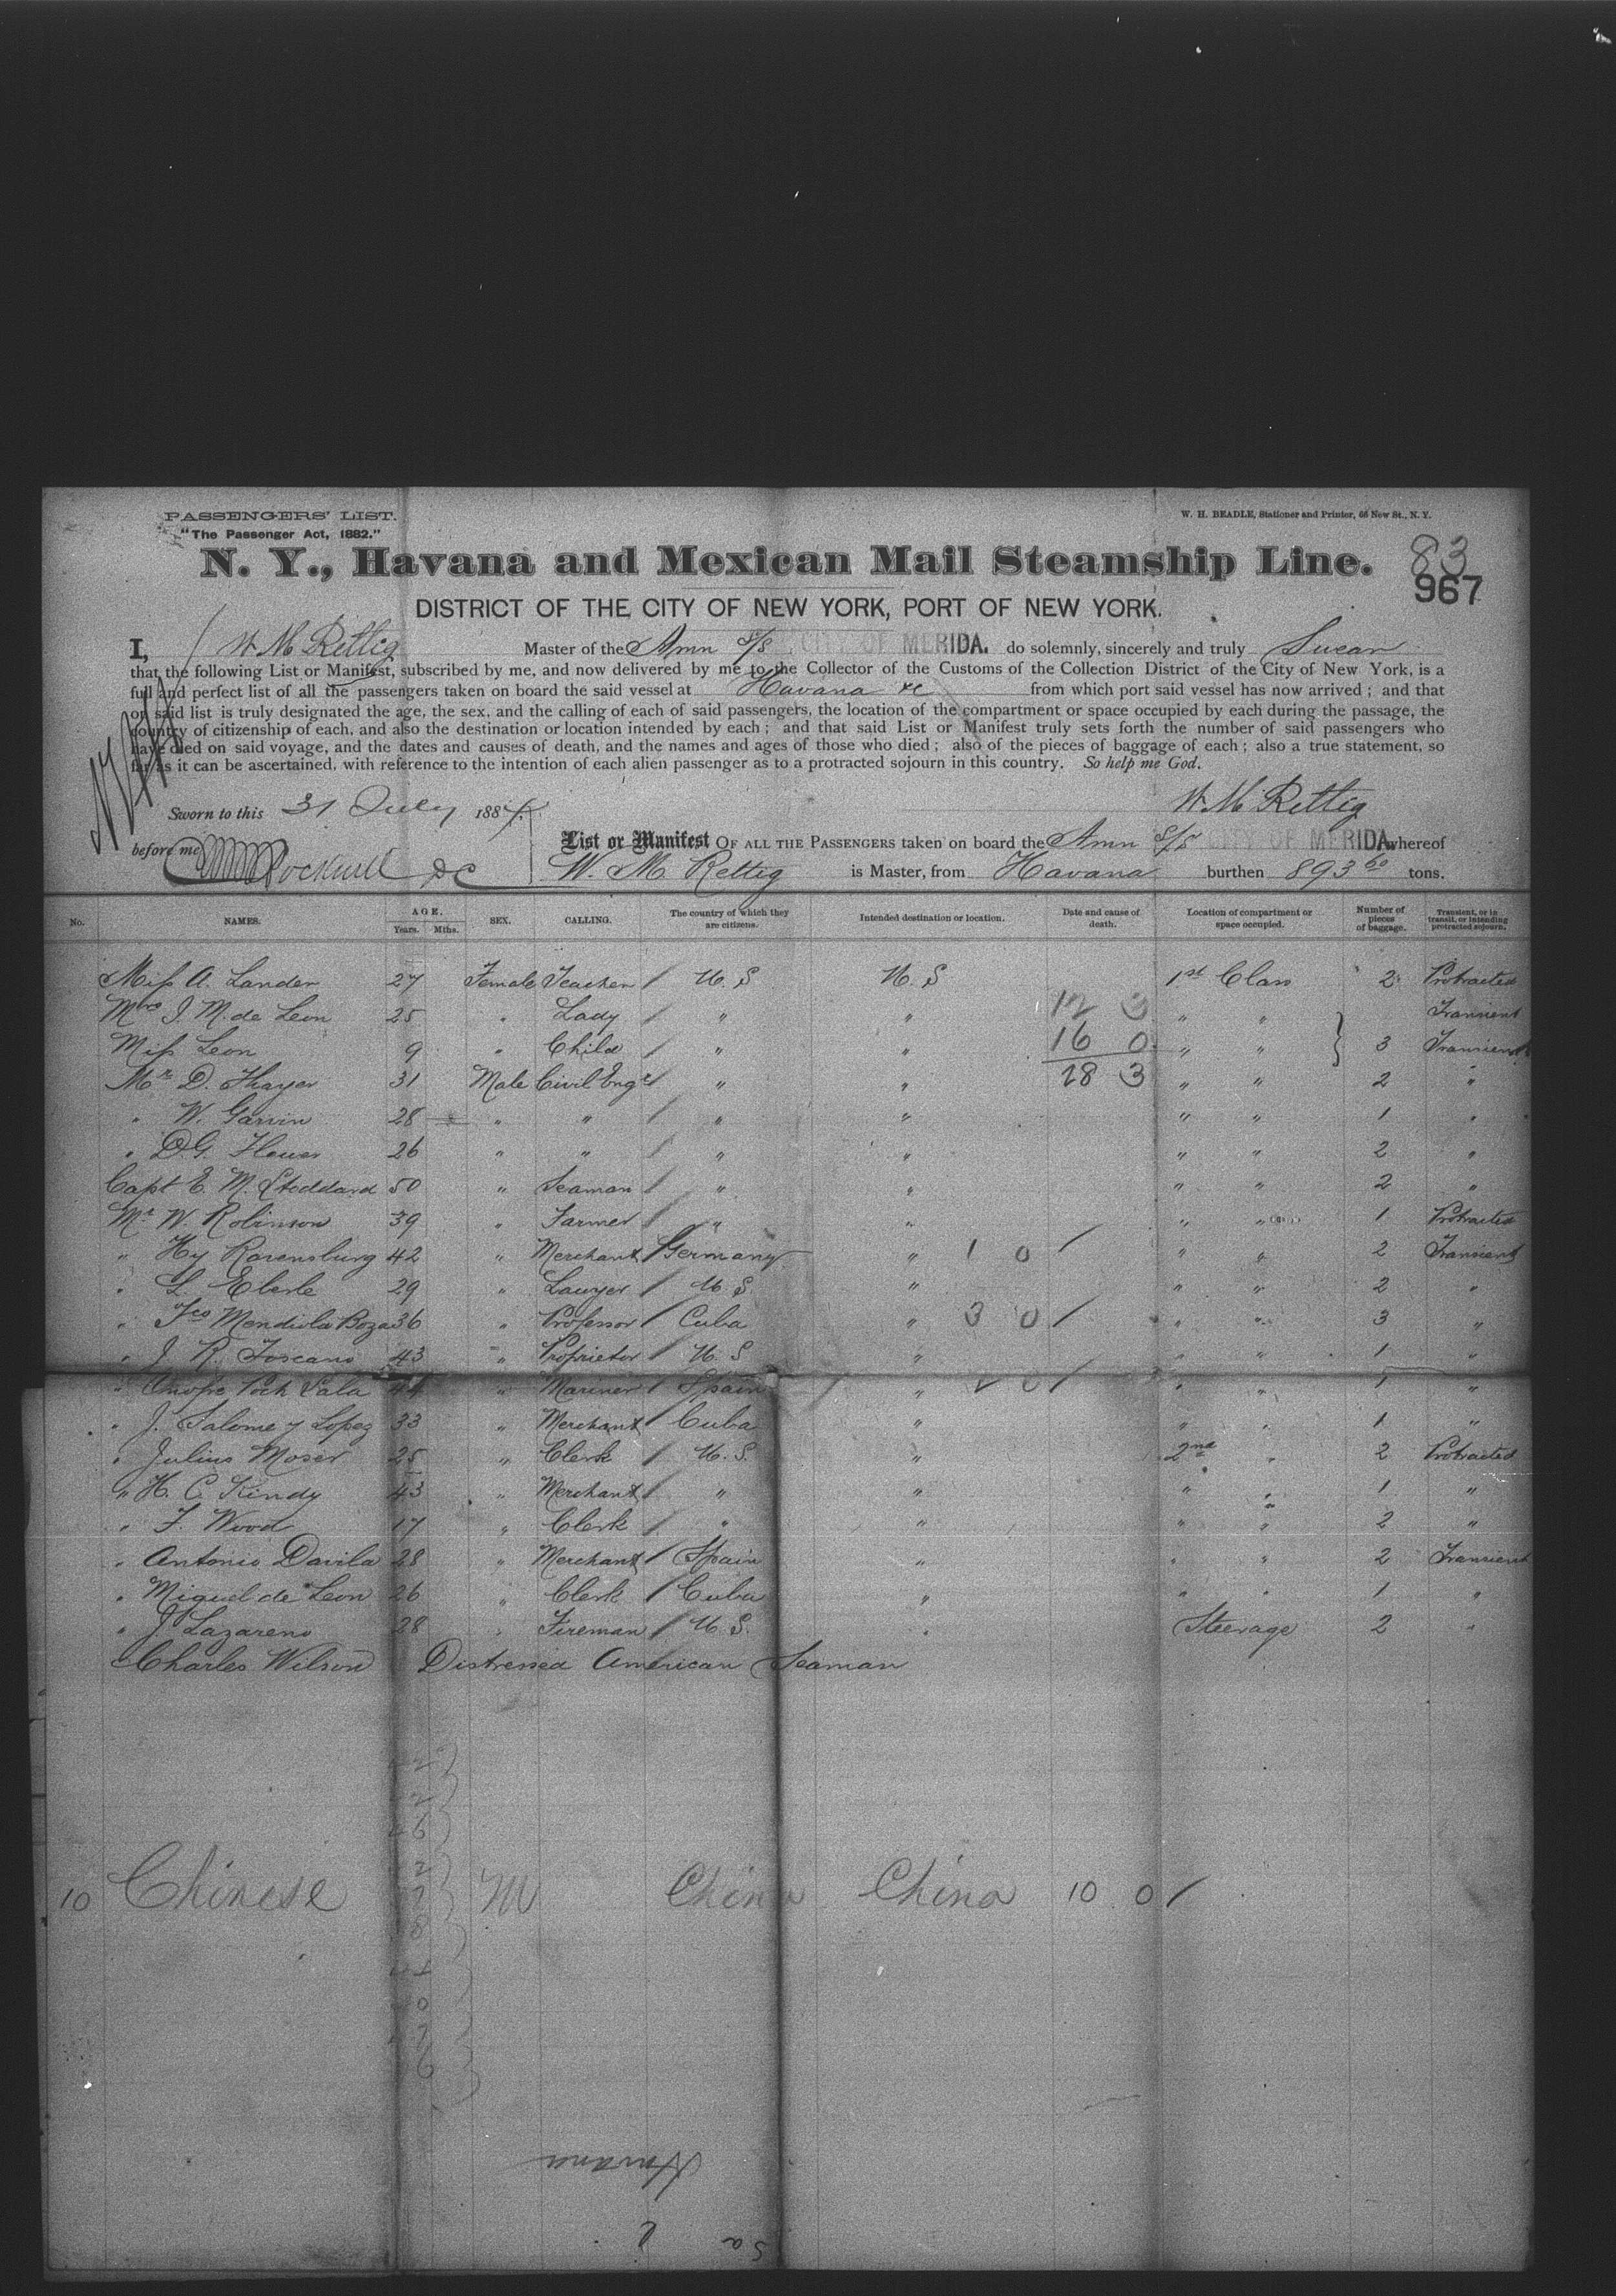 PASSENGERS' LIST.
"The Passenger Act, 1882."
W. H. BEADLE, Stationer and Printer, 66 New St., N. Y.
N. Y., Havana and Mexican Mail Steamship Line.
83
967
DISTRICT OF THE CITY OF NEW YORK, PORT OF NEW YORK.
I, W M Rettig Master of the Amn S/S CITY OF MERIDA. do solemnly, sincerely and truly Swear
that the following List or Manifest, subscribed by me, and now delivered by me to the Collector of the Customs of the Collection District of the City of New York, is a
full and perfect list of all the passengers taken on board the said vessel at Havana &c from which port said vessel has now arrived; and that
on said list is truly designated the age, the sex, and the calling of each of said passengers, the location of the compartment or space occupied by each during the passage, the
country of citizenship of each, and also the destination or location intended by each; and that said List or Manifest truly sets forth the number of said passengers who
have died on said voyage, and the dates and causes of death, and the names and ages of those who died; also of the pieces of baggage of each; also a true statement, so
far as it can be ascertained, with reference to the intention of each alien passenger as to a protracted sojourn in this country. So help me God.
W M Rettig
Sworn to this 31 July 1884
before me Rockwell DC
List or Manifest OF ALL THE PASSENGERS taken on board the Amn S/S CITY OF MERIDA whereof
W. M. Rettig is Master, from Havana burthen 893 60 tons.
No. NAMES. AGE. Years. Mths. SEX. CALLING. The country of which they are citizens. Intended destination or location. Date and cause of death. Location of compartment or space occupied. Number of pieces of baggage. Transient, or in transit, or intending protracted sojourn.
Miss A. Lander 27 Female Teacher / U. S U. S 1st Class 2 Protracted
Mrs J. M. de Leon 25 " Lady / " " 12 3 " " Transient
Miss Leon 9 " Child / " " 16 0 " " } 3 Transient
Mr D. Thayer 31 Male Civil Engr / " " 28 3 " " 2 "
" W. Garvin 28 " " / " " " " 1 "
" D.G. 26 " " / " " " " 2 "
Capt E. M. Stoddard 50 " Seaman / " " " " 2 "
Mr W. Robinson 39 " Farmer / " " " " 1 Protracted
" Hy Ravensburg 42 " Merchant / Germany " 1 0 / " " 2 Transient
" L. Eberle 29 " Lawyer / U. S. " " " 2 "
" Fco Mendiola Boza 36 " Professor / Cuba " 3 0 / " " 3 "
" J. R. Toscano 43 " Proprietor / U. S " " " 1 "
" Onofre Poch Sala 44 " Mariner / Spain " 2 0 / " " 1 "
" J. Salome y Lopez 33 " Merchant / Cuba " " " 1 "
" Julius Moser 25 " Clerk / U. S. " 2nd " 2 Protracted
" H. C. Kindy 43 " Merchant / " " " " 1 "
" F. Wood 17 " Clerk / " " " " 2 "
" Antonio Davila 28 " Merchant / Spain " " " 2 Transient
" Miguel de Leon 26 " Clerk / Cuba " " " 1 "
" J. Lazareno 28 " Fireman / U. S. " Steerage 2 "
Charles Wilson Distressed American Seaman
10 Chinese M China China 10 0 /
Havana